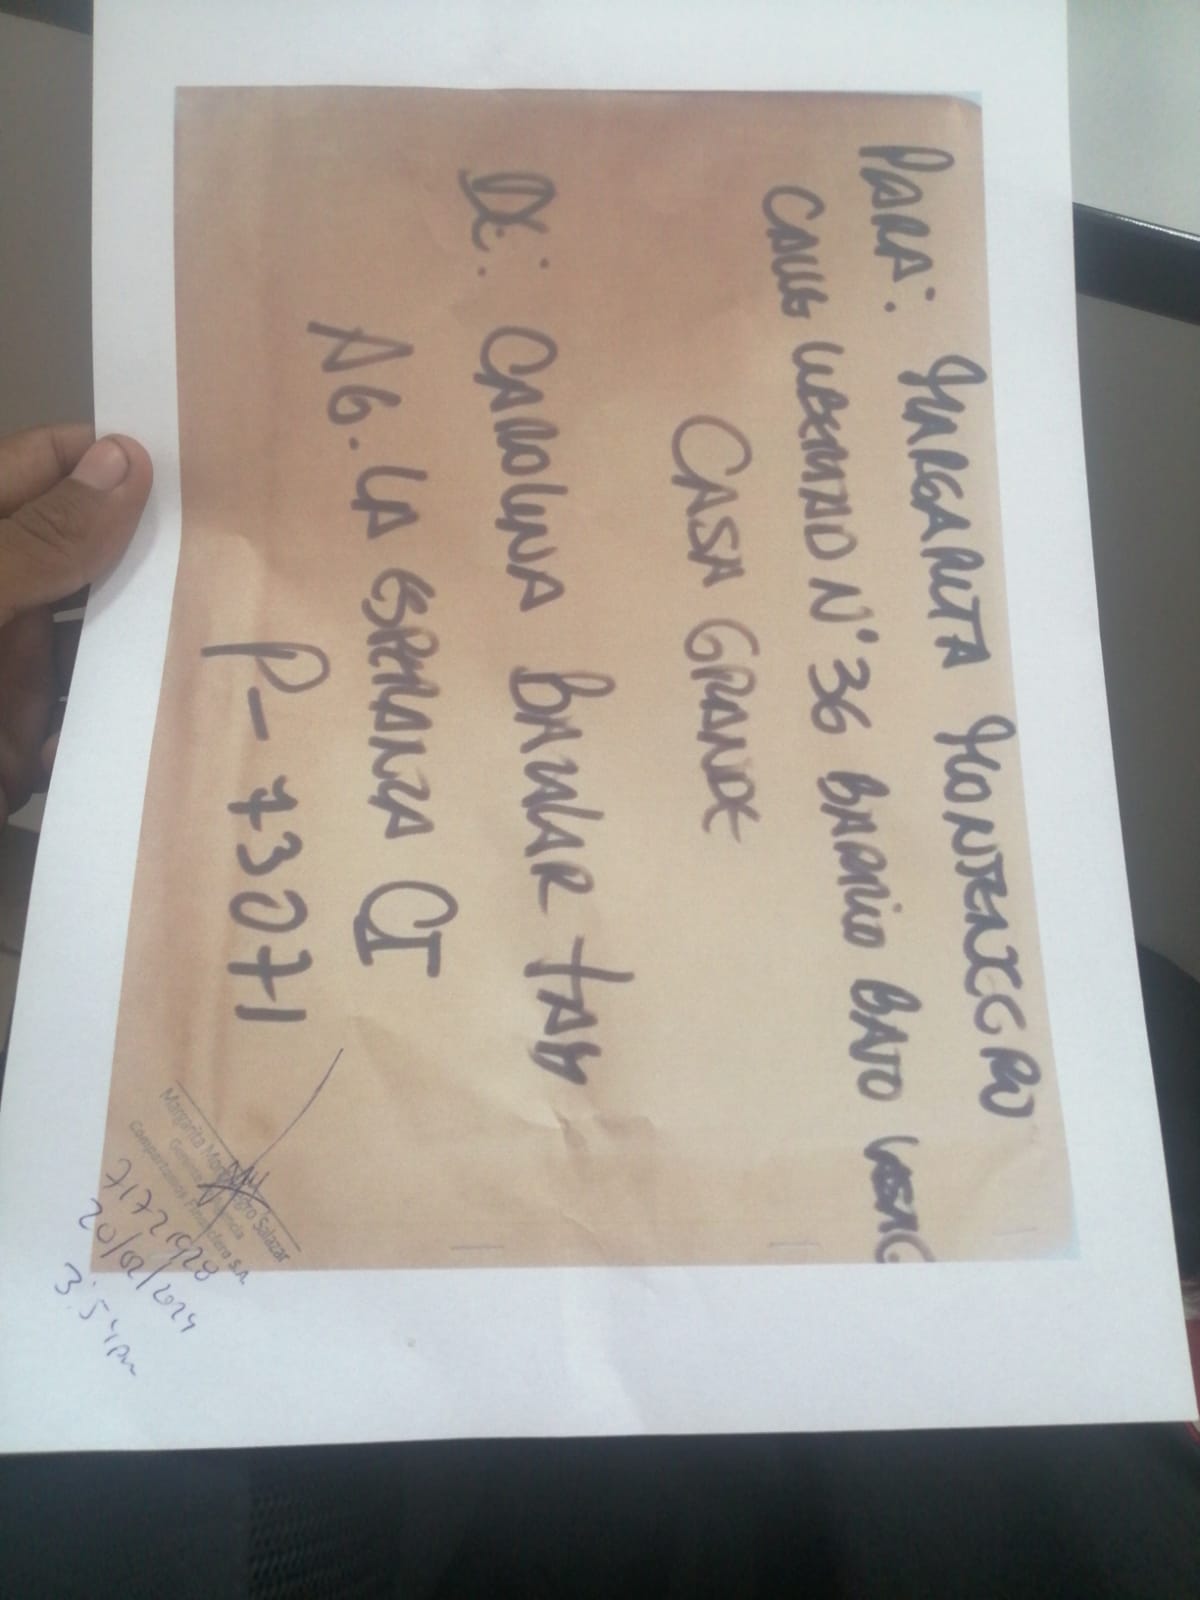 PARA: MARGARITA MONTENEGRO
CALLE LIBERTAD N° 36 BARRIO BAJO
CASA GRANDE
DE: CAROLINA BAZALAR TAB
AG. LA ESPERANZA CI
P- 73071
Margarita Montenegro Salazar
Gerente Agencia
Compartamos Financiera S.A.
71721928
20/02/2024
3:54 pm